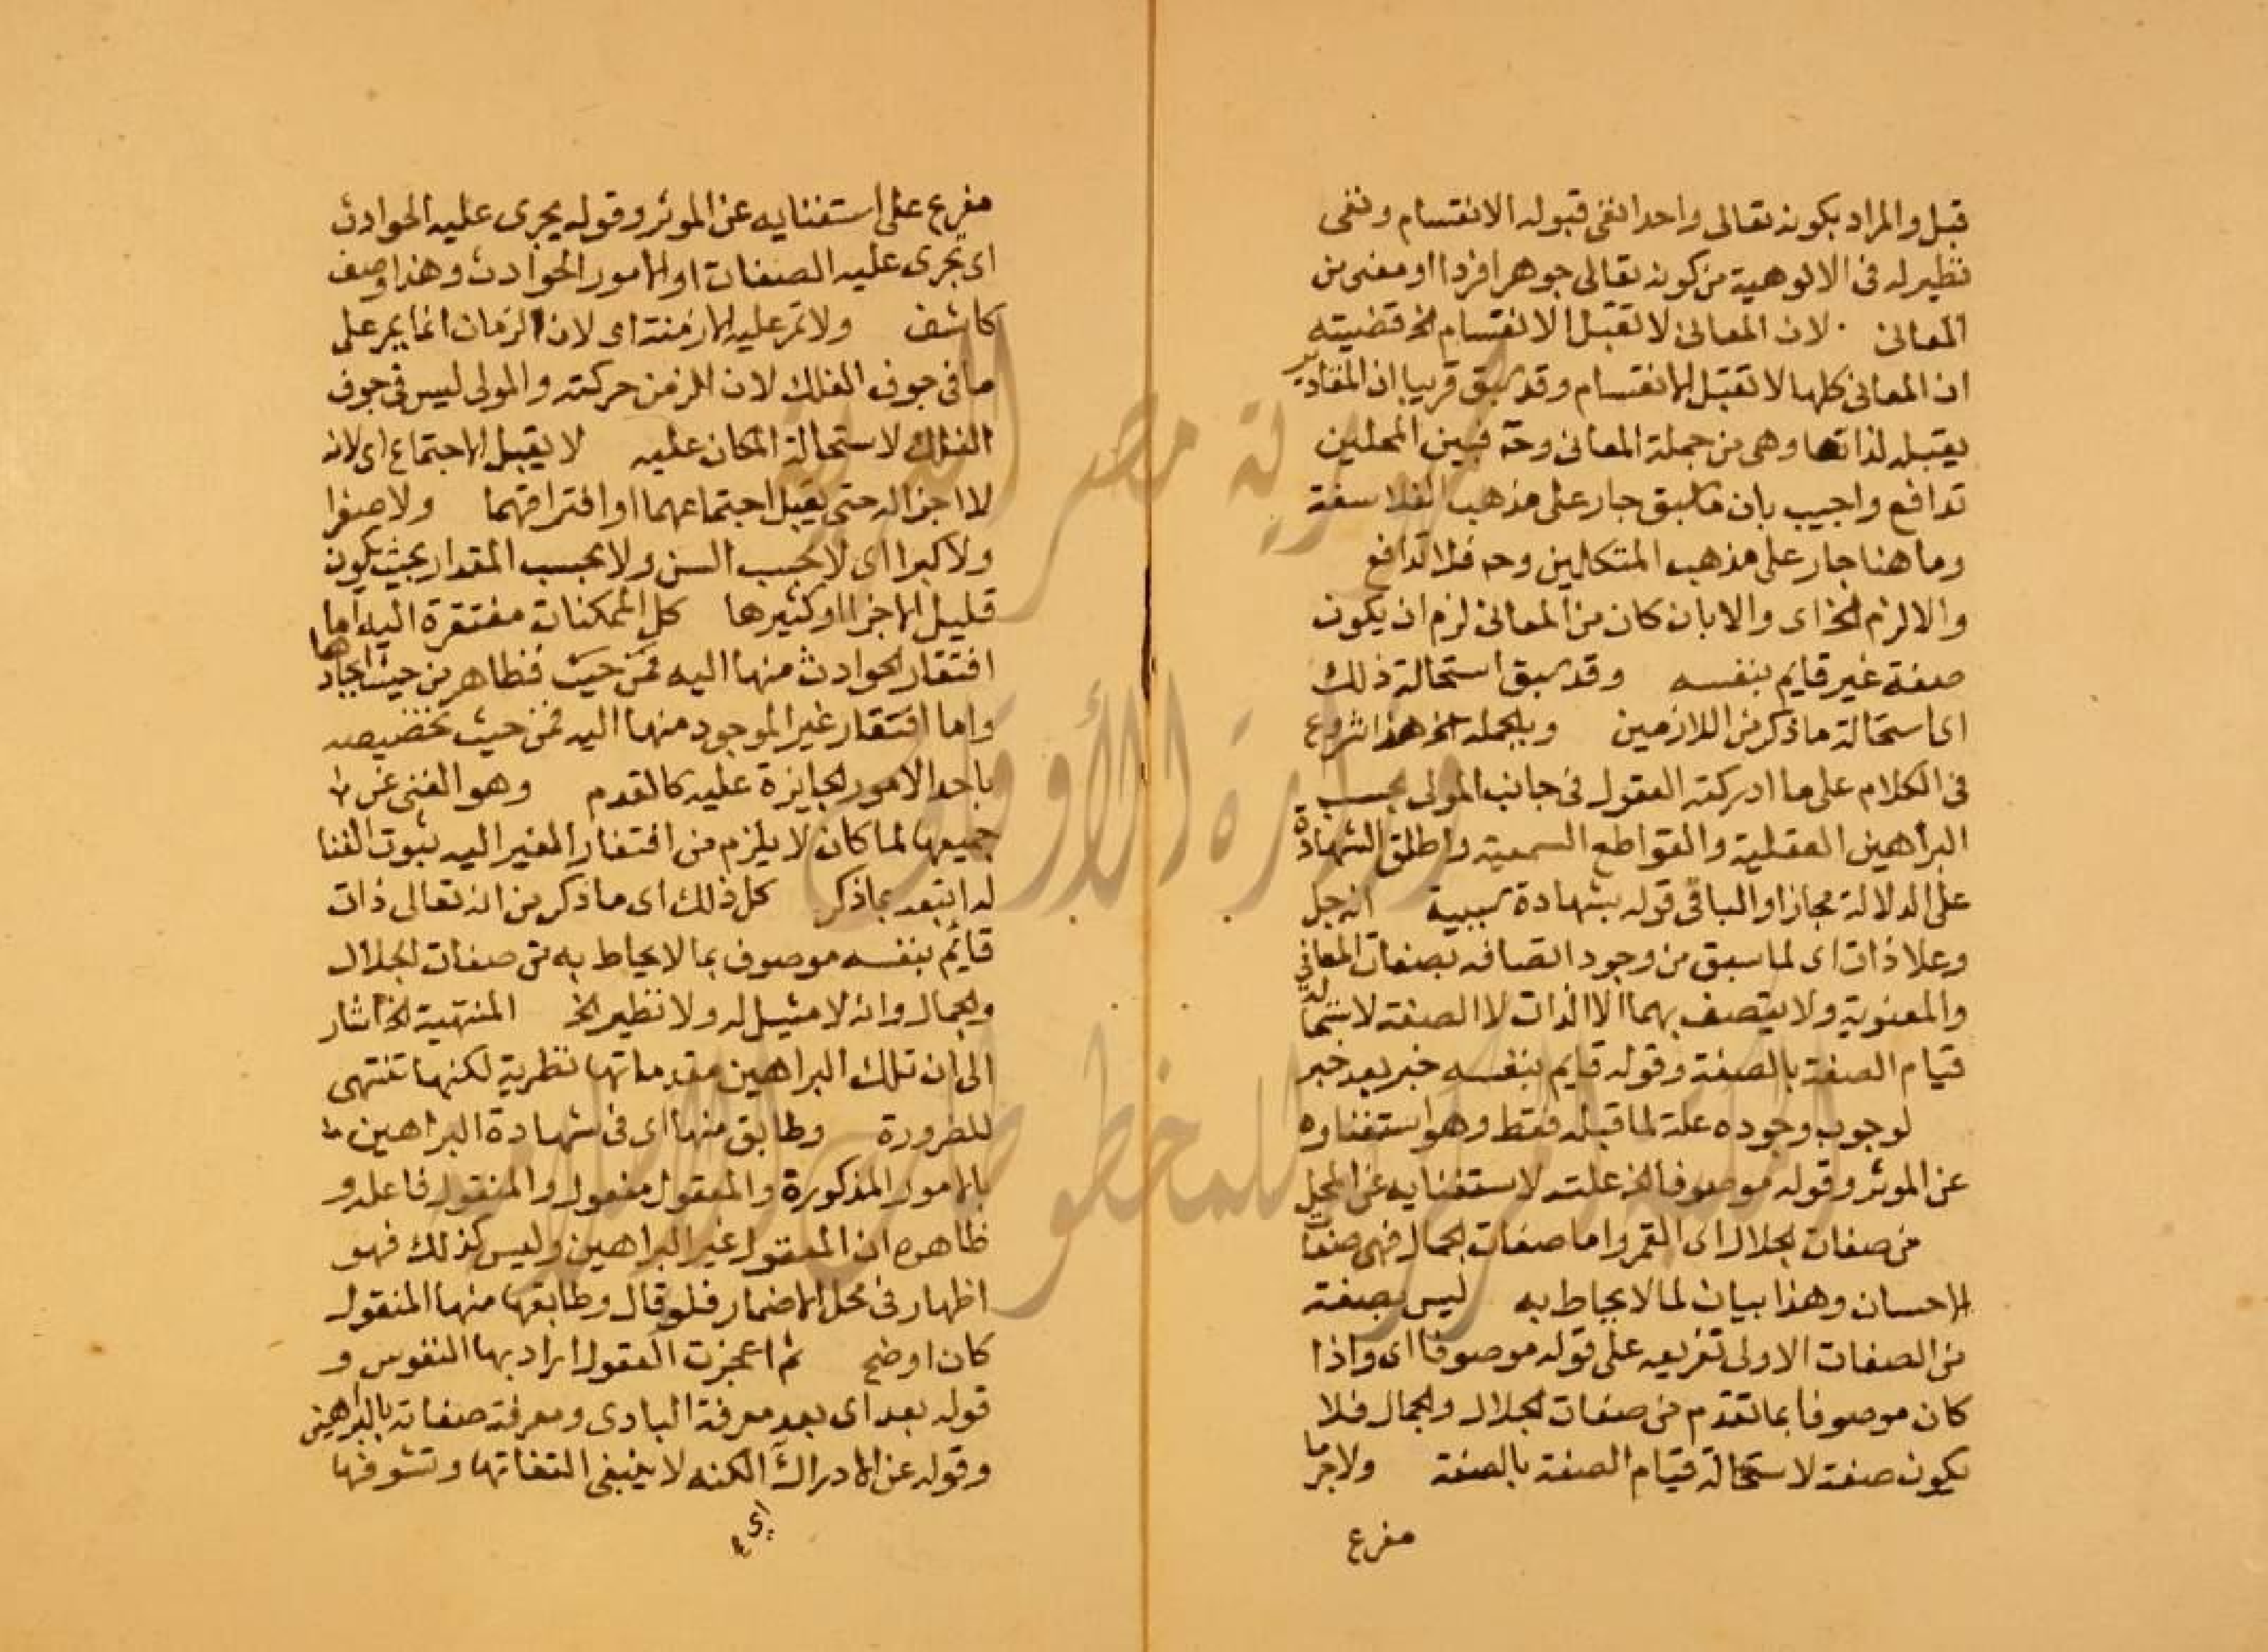 قبل والمراد بكونه تعالى واحدا نفى قبوله الانقسام ونفى
نظير له فى الالوهية من كونه تعالى جوهرا فردا او معنى من
المعانى لان المعانى لا تقبل الانقسام الخ قضيته
ان المعانى كلها لا تقبل الانقسام وقد سبق قريبا ان المقادير
يقبله لذاتها وهى من جملة المعانى وح فبين المحلين
تدافع واجيب بان ما سبق جار على مذهب الفلاسفة
وما هنا جار على مذهب المتكلمين وح فلا تدافع
والا لزم الخ اى والا بان كان من المعانى لزم ان يكون
صفة غير قايم بنفسه وقد سبق استحالة ذلك
اى استحالة ما ذكر من اللازمين وبالجملة الخ هذا شروع
فى الكلام على ما ادركته العقول فى جانب المولى بحسب
البراهين العقلية والقواطع السمعية واطلق الشهادة
على الدلالة مجازا والبا فى قوله بشهادة سببية انه جل
وعلا ذات اى لما سبق من وجود اتصافه بصفات المعانى
والمعنوية ولا يتصف بهما الا الذات لا الصفة لاستحالة
قيام الصفة بالصفة وقوله قايم بنفسه خبر بعد خبر
لوجوب وجوده علة لما قبله فقط وهو استغناوه
عن الموثر وقوله موصوفا الخ علته لاستغنايه عن المحل
من صفات الجلال اى القهر واما صفات الجمال فهى صفات
الاحسان وهذا بيان لما لا يحاط به ليس بصفة
من الصفات الاولى تفريعه على قوله موصوفا اى واذا
كان موصوفا بما تقدم من صفات الجلال والجمال فلا
يكون صفة لاستحالة قيام الصفة بالصفة ولا جرما
مفرع
مفرع على استغنايه عن الموثر وقوله يجرى عليه الحوادث
اى تجرى عليه الصفات او الامور الحوادث وهذا وصف
كاشف ولا تمر عليه الازمنة اى لان الزمان انما يمر على
ما فى جوف الفلك لان الزمن حركته والمولى ليس فى جوف
الفلك لاستحالة المكان عليه لا يقبل الاجتماع اى لانه
لا اجزا له حتى يقبل اجتماعهما او افتراقهما ولا صغرا
ولا كبرا اى لا بحسب السن ولا بحسب المقدار بحيث يكون
قليل الاجزا او كثيرها كل الممكنات مفتقرة اليه اما
افتقار الحوادث منها اليه فمن حيث فظاهر من حيث ايجادها
واما افتقار غير الموجود منها اليه فمن حيث تخصيصه
باحد الامور الجايزة عليه كالعدم وهو الغنى عن
جميعها لما كان لا يلزم من افتقار الغير اليه ثبوت الغنا
له اتبعه بما ذكر كل ذلك اى ما ذكر من انه تعالى ذات
قايم بنفسه موصوف بما لا يحاط به من صفات الجلال
والجمال وانه لا مثيل له ولا نظير الخ المنتهية الخ اشار
الى ان تلك البراهين مقدماتها نظرية لكنها تنتهى
للضرورة وطابق منها اى فى شهادة البراهين
بالامور المذكورة والمعقول مفعول والمنقول فاعله و
ظاهره ان المعقول غير البراهين وليس كذلك فهو
اظهار فى محل الاضمار فلو قال وطابقها منها المنقول
كان اوضح ثم اعجزت العقول اراد بها النفوس و
قوله بعد اى بعد معرفة البادى ومعرفة صفاته بالبراهين
وقوله عن الادراك الكنه لا ينبغى التفاتها وتشوفها